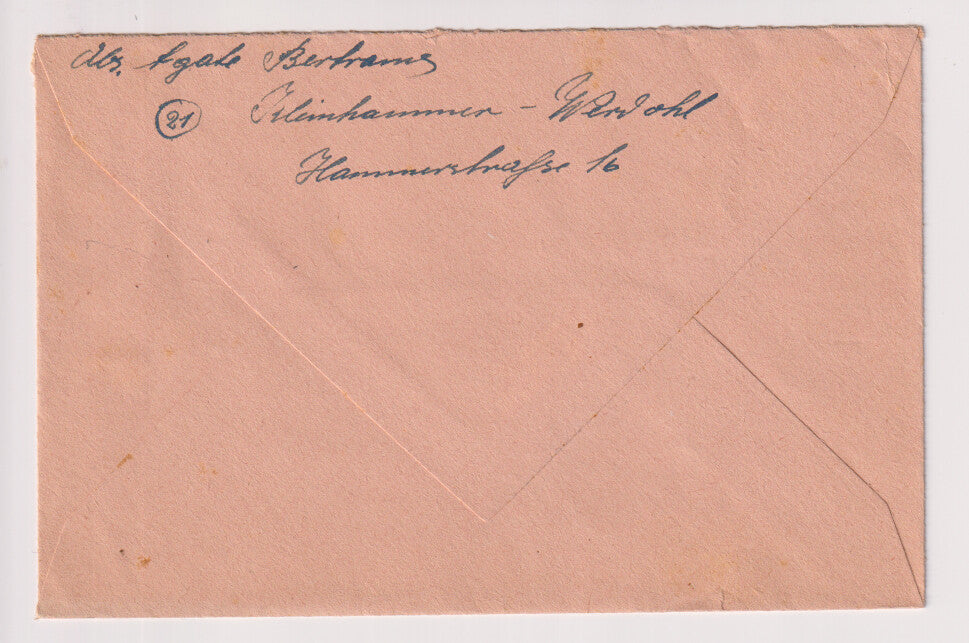 Abs. Agate Bertrams
(21) Kleinhammer - Werdohl
Hammerstraße 16